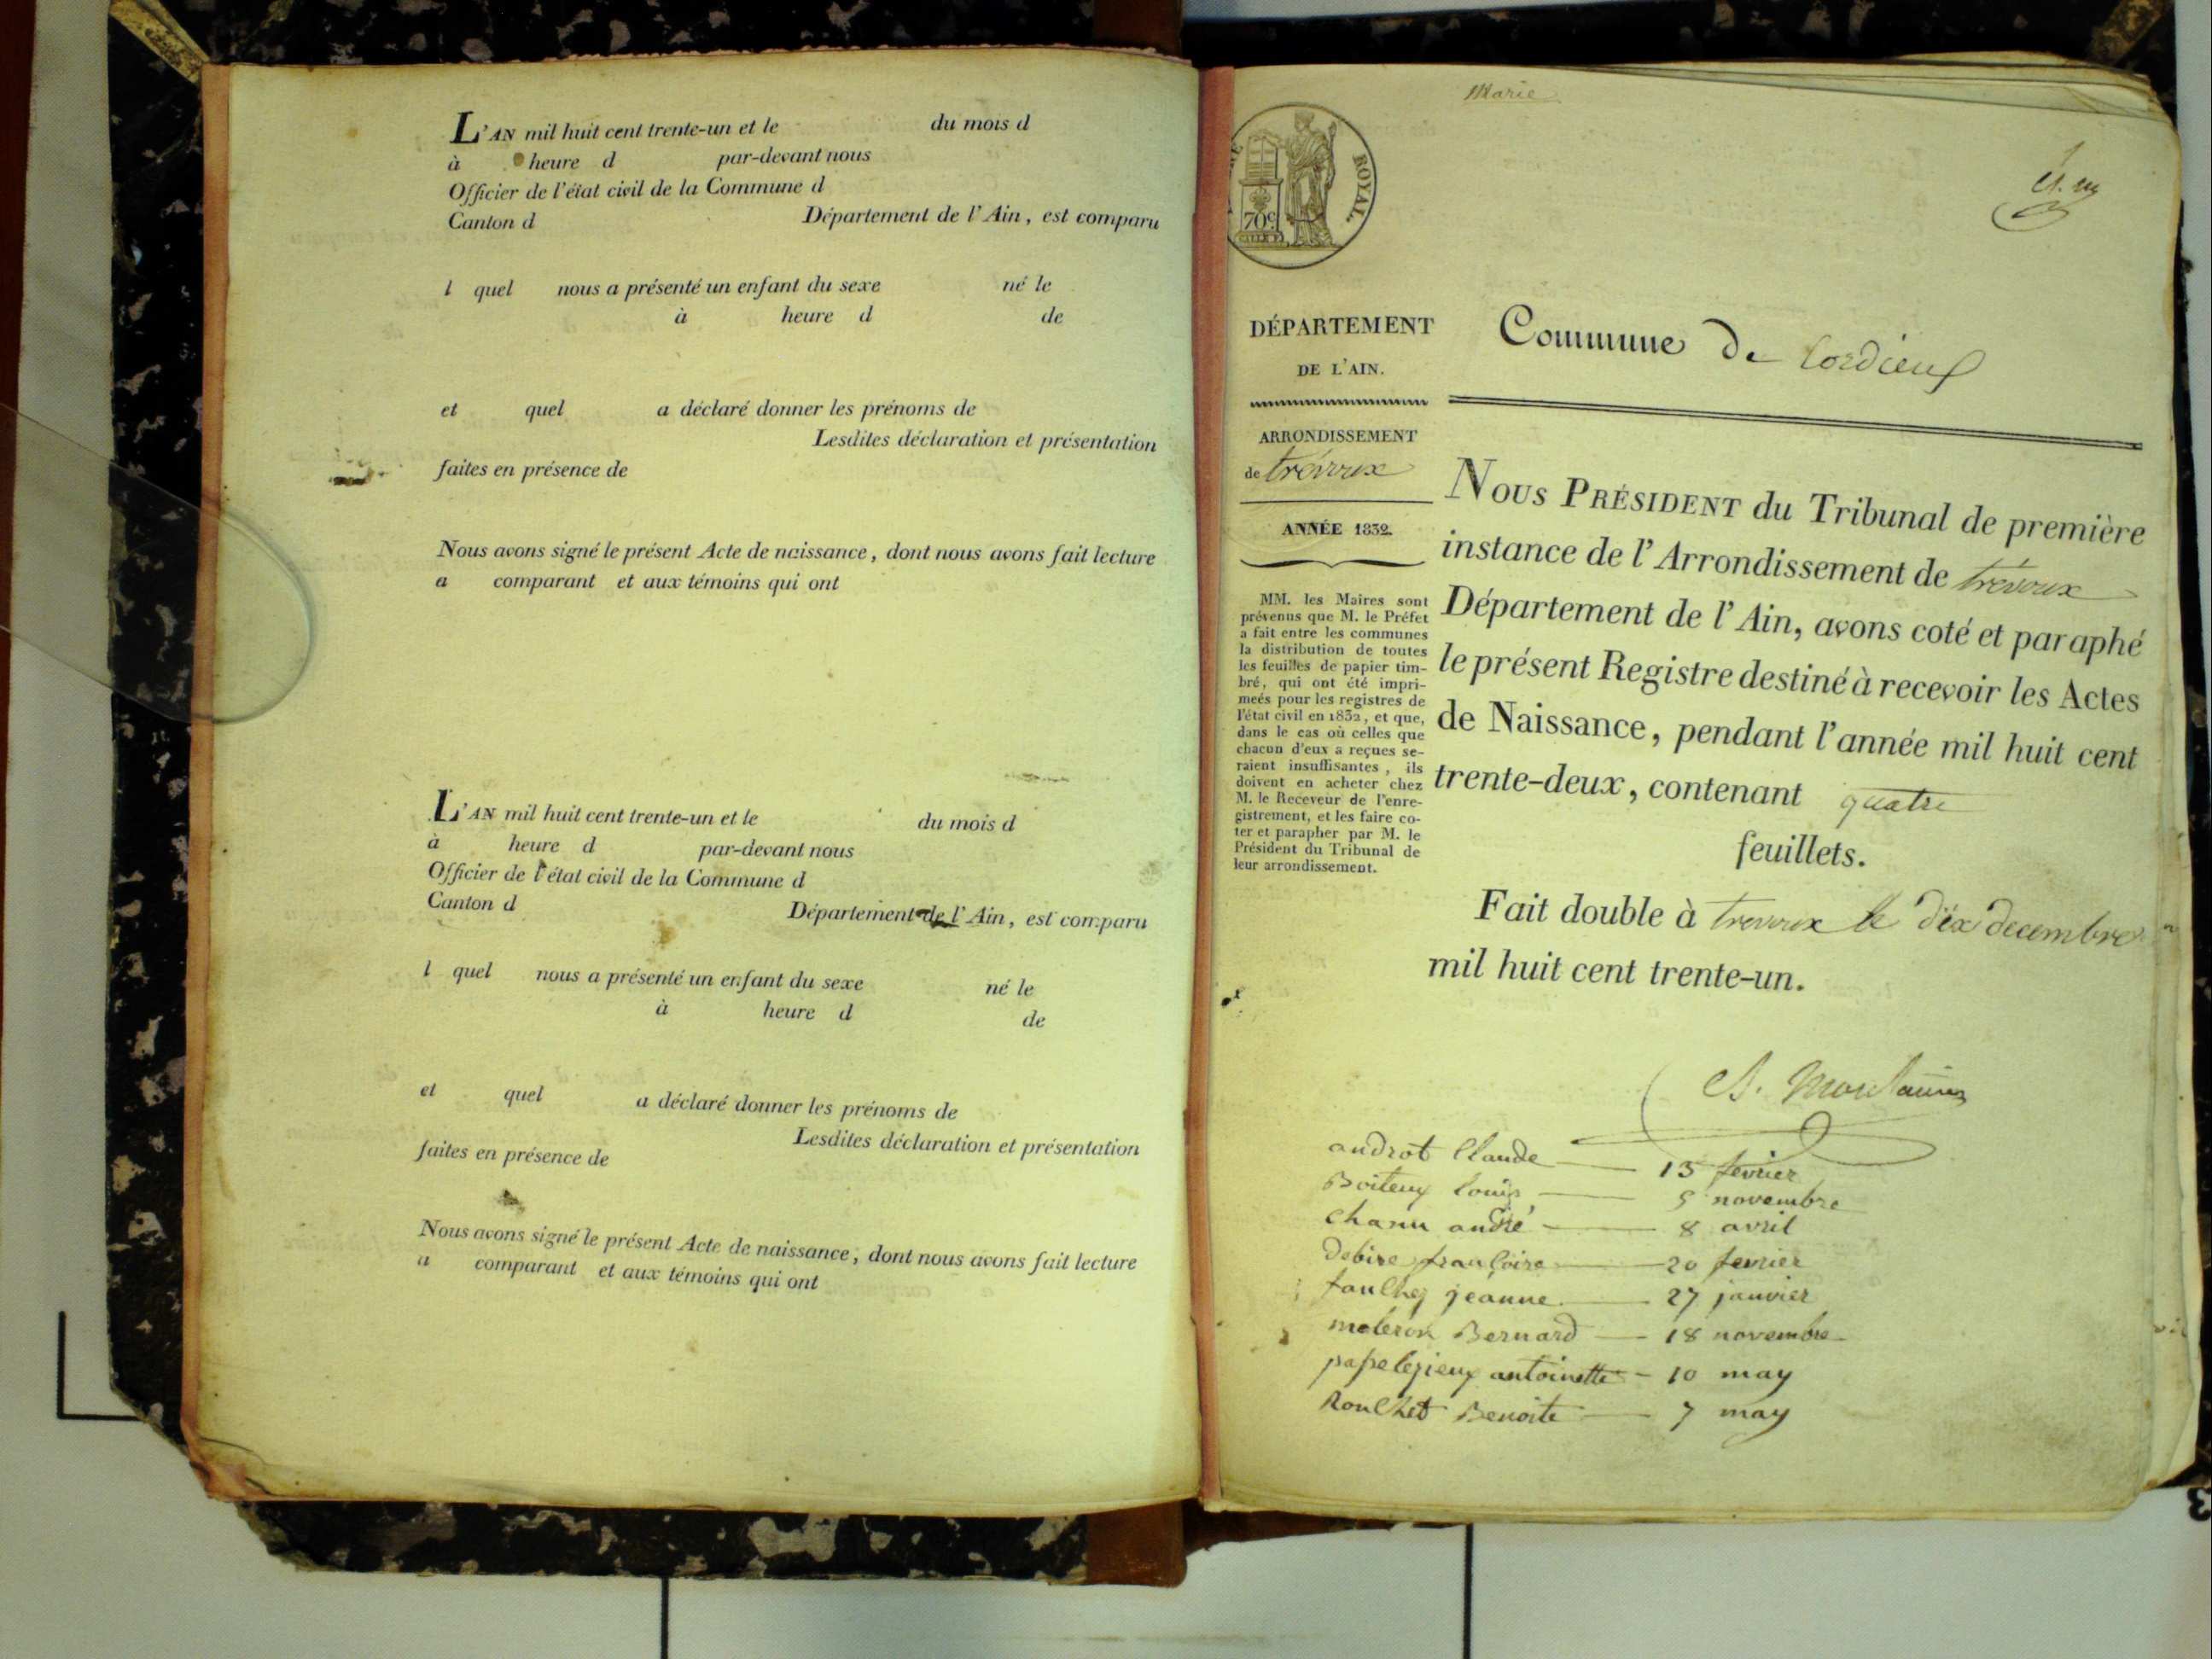 L'AN mil huit cent trente-un et le du mois d
à heure d par-devant nous
Officier de l'état civil de la Commune d
Canton d Département de l'Ain, est comparu
l quel nous a présenté un enfant du sexe né le
à heure d de
et quel a déclaré donner les prénoms de
Lesdites déclaration et présentation
faites en présence de
Nous avons signé le présent Acte de naissance, dont nous avons fait lecture
a comparant et aux témoins qui ont
L'AN mil huit cent trente-un et le du mois d
à heure d par-devant nous
Officier de l'état civil de la Commune d
Canton d Département de l'Ain, est comparu
l quel nous a présenté un enfant du sexe né le
à heure d de
et quel a déclaré donner les prénoms de
Lesdites déclaration et présentation
faites en présence de
Nous avons signé le présent Acte de naissance, dont nous avons fait lecture
a comparant et aux témoins qui ont
Marie
ROYAL.
70c
DÉPARTEMENT
DE L'AIN.
Commune de Cordieux
ARRONDISSEMENT
de trévoux
ANNÉE 1832.
MM. les Maires sont
prévenus que M. le Préfet
a fait entre les communes
la distribution de toutes
les feuilles de papier tim-
bré, qui ont été impri-
meés pour les registres de
l'état civil en 1832, et que,
dans le cas où celles que
chacun d'eux a reçues se-
raient insuffisantes, ils
doivent en acheter chez
M. le Receveur de l'enre-
gistrement, et les faire co-
ter et parapher par M. le
Président du Tribunal de
leur arrondissement.
NOUS PRÉSIDENT du Tribunal de première
instance de l'Arrondissement de trévoux
Département de l'Ain, avons coté et paraphé
le présent Registre destiné à recevoir les Actes
de Naissance, pendant l'année mil huit cent
trente-deux, contenant quatre
feuillets.
Fait double à trevoux le dix decembre
mil huit cent trente-un.
androt Claude 13 fevrier
Boiteux louis 5 novembre
Chanu andré 8 avril
20 fevrier
jeanne 27 janvier
Bernard 18 novembre
antoinette 10 may
Rouchet Benoite 7 may